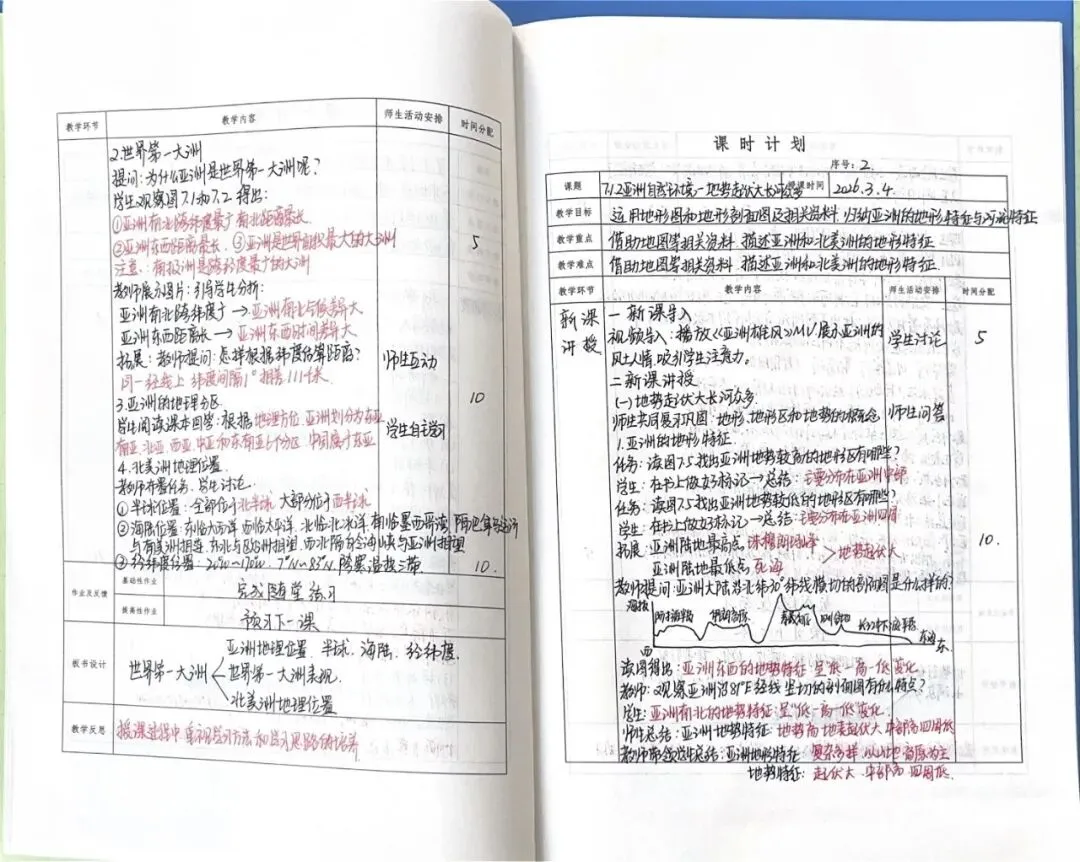 教学环节 教学内容 师生活动安排 时间分配
2.世界第一大洲
提问:为什么亚洲是世界第一大洲呢?
学生观察图7.1和7.2 得出:
①亚洲南北跨纬度最广 南北距离最长
②亚洲东西距离最长 ③亚洲是世界面积最大的大洲 5
注意:南极洲是跨经度最广的大洲
教师展示图片:引导学生分析:
亚洲南北跨纬度广→亚洲南北气候差异大
亚洲东西距离长→亚洲东西时间差异大
拓展:教师提问:怎样根据纬度估算距离? 师生互动
同一经线上 纬度间隔1°相差111千米
3.亚洲的地理分区 10
学生阅读课本回答:根据地理方位 亚洲划分为东亚 学生自主学习
南亚.北亚.西亚.中亚和东南亚6个分区 中国属于东亚
4.北美洲地理位置
教师布置任务.学生讨论.
①半球位置:全部位于北半球 大部分位于西半球
②海陆位置:东临大西洋 西临太平洋 北临北冰洋 南临墨西哥湾 隔巴拿马运河
与南美洲相连.东北与欧洲相望.西北隔白令海峡与亚洲相望
③经纬度位置:20°W~170°W 7°N~83°N 跨寒温热三带 10.
作业及反馈 基础性作业 完成随堂练习
提高性作业 预习下一课
板书设计
亚洲地理位置 半球、海陆、经纬度.
世界第一大洲 世界第一大洲表现.
北美洲地理位置
教学反思 授课过程中 重视学习方法和学习思路的培养
课时计划
序号:2
课题 7.1.2亚洲自然环境-地势起伏大长河众多 课时时间 2026.3.4.
教学目标 运用地形图和地形剖面图及相关资料.归纳亚洲的地形特征与河流特征
教学重点 借助地图等相关资料.描述亚洲和北美洲的地形特征
教学难点 借助地图等相关资料.描述亚洲和北美洲的地形特征.
教学环节 教学内容 师生活动安排 时间分配
新课讲授 一 新课导入
视频导入:播放《亚洲雄风》MV展示亚洲的 学生讨论 5
风土人情.吸引学生注意力。
二新课讲授
(一)地势起伏大长河众多.
师生共同复习巩固:地形.地形区和地势的概念. 师生问答
1.亚洲的地形特征.
任务:读图7.5找出亚洲地势较高的地形区有哪些?
学生:在书上做好标记→总结:主要分布在亚洲中部
任务:读图7.5找出亚洲地势较低的地形区有哪些?
学生:在书上做好标记→总结:主要分布在亚洲四周
拓展:亚洲陆地最高点 珠穆朗玛峰 >地势起伏大 10.
亚洲陆地最低点 死海
教师提问:亚洲大陆沿北纬30°纬线横切的剖面图是什么样的?
海拔 阿拉伯高原 伊朗高原 青藏高原 四川盆地 长江中下游平原 东海
西 东
读图得出:亚洲东西的地势特征呈"低-高-低"变化.
教师:观察亚洲沿81°E经线竖切的剖面图有什么特点?
学生:亚洲南北的地势特征呈"低-高-低"变化.
师生总结:亚洲地势特征:地势高 地表起伏大 中部高四周低
教师带领学生总结:亚洲地形特征:复杂多样.以山地高原为主
地势特征:起伏大 中部高 四周低.